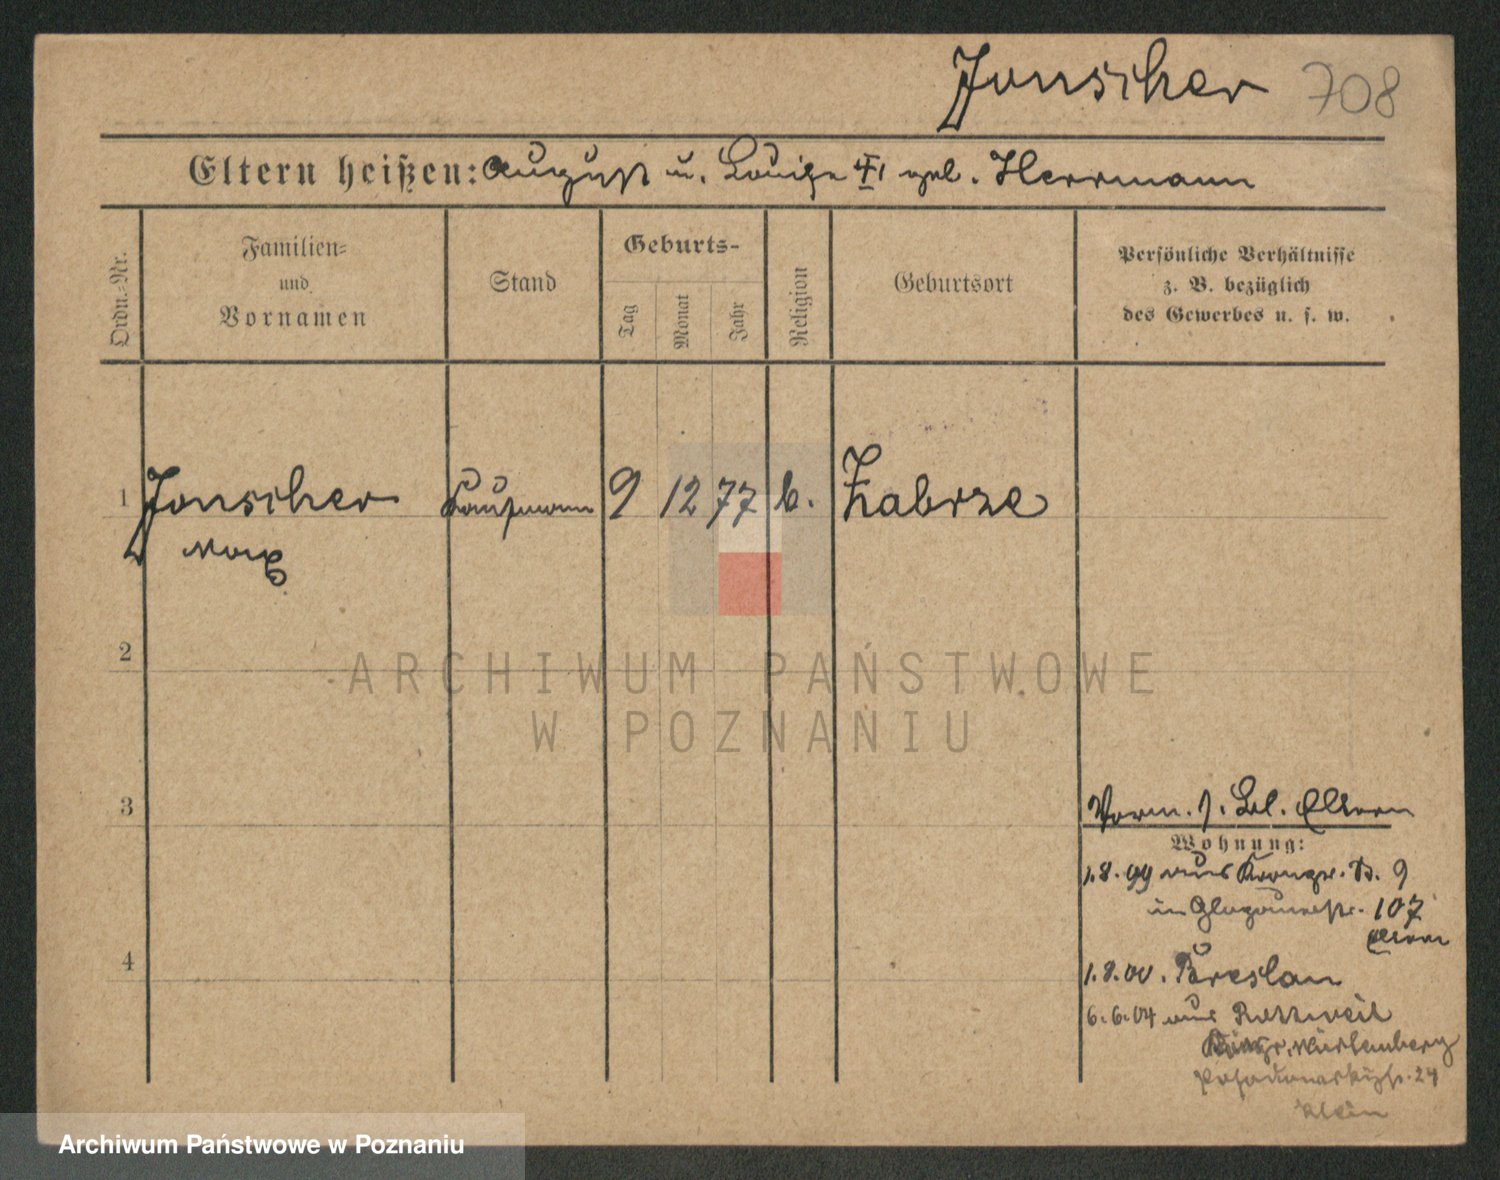 Jonscher 708
Eltern heißen: August u. Louise geb. Herrmann
Ordn.-Nr.
Familien-
und
Vornamen
Stand
Geburts-
Tag
Monat
Jahr
Religion
Geburtsort
Persönliche Verhältnisse
z. B. bezüglich
des Gewerbes u. s. w.
1 Jonscher Kaufmann 9 12 77 k. Zabrze
Max
2
ARCHIWUM PAŃSTWOWE
W POZNANIU
3
Vorm. Eltern
Wohnung:
1.8.99 aus 9
in Glogauerstr. 107
Eltern
4
1.8.00. Breslau
6.6.04 aus Rottweil
Württemberg
24
Klein
Archiwum Państwowe w Poznaniu